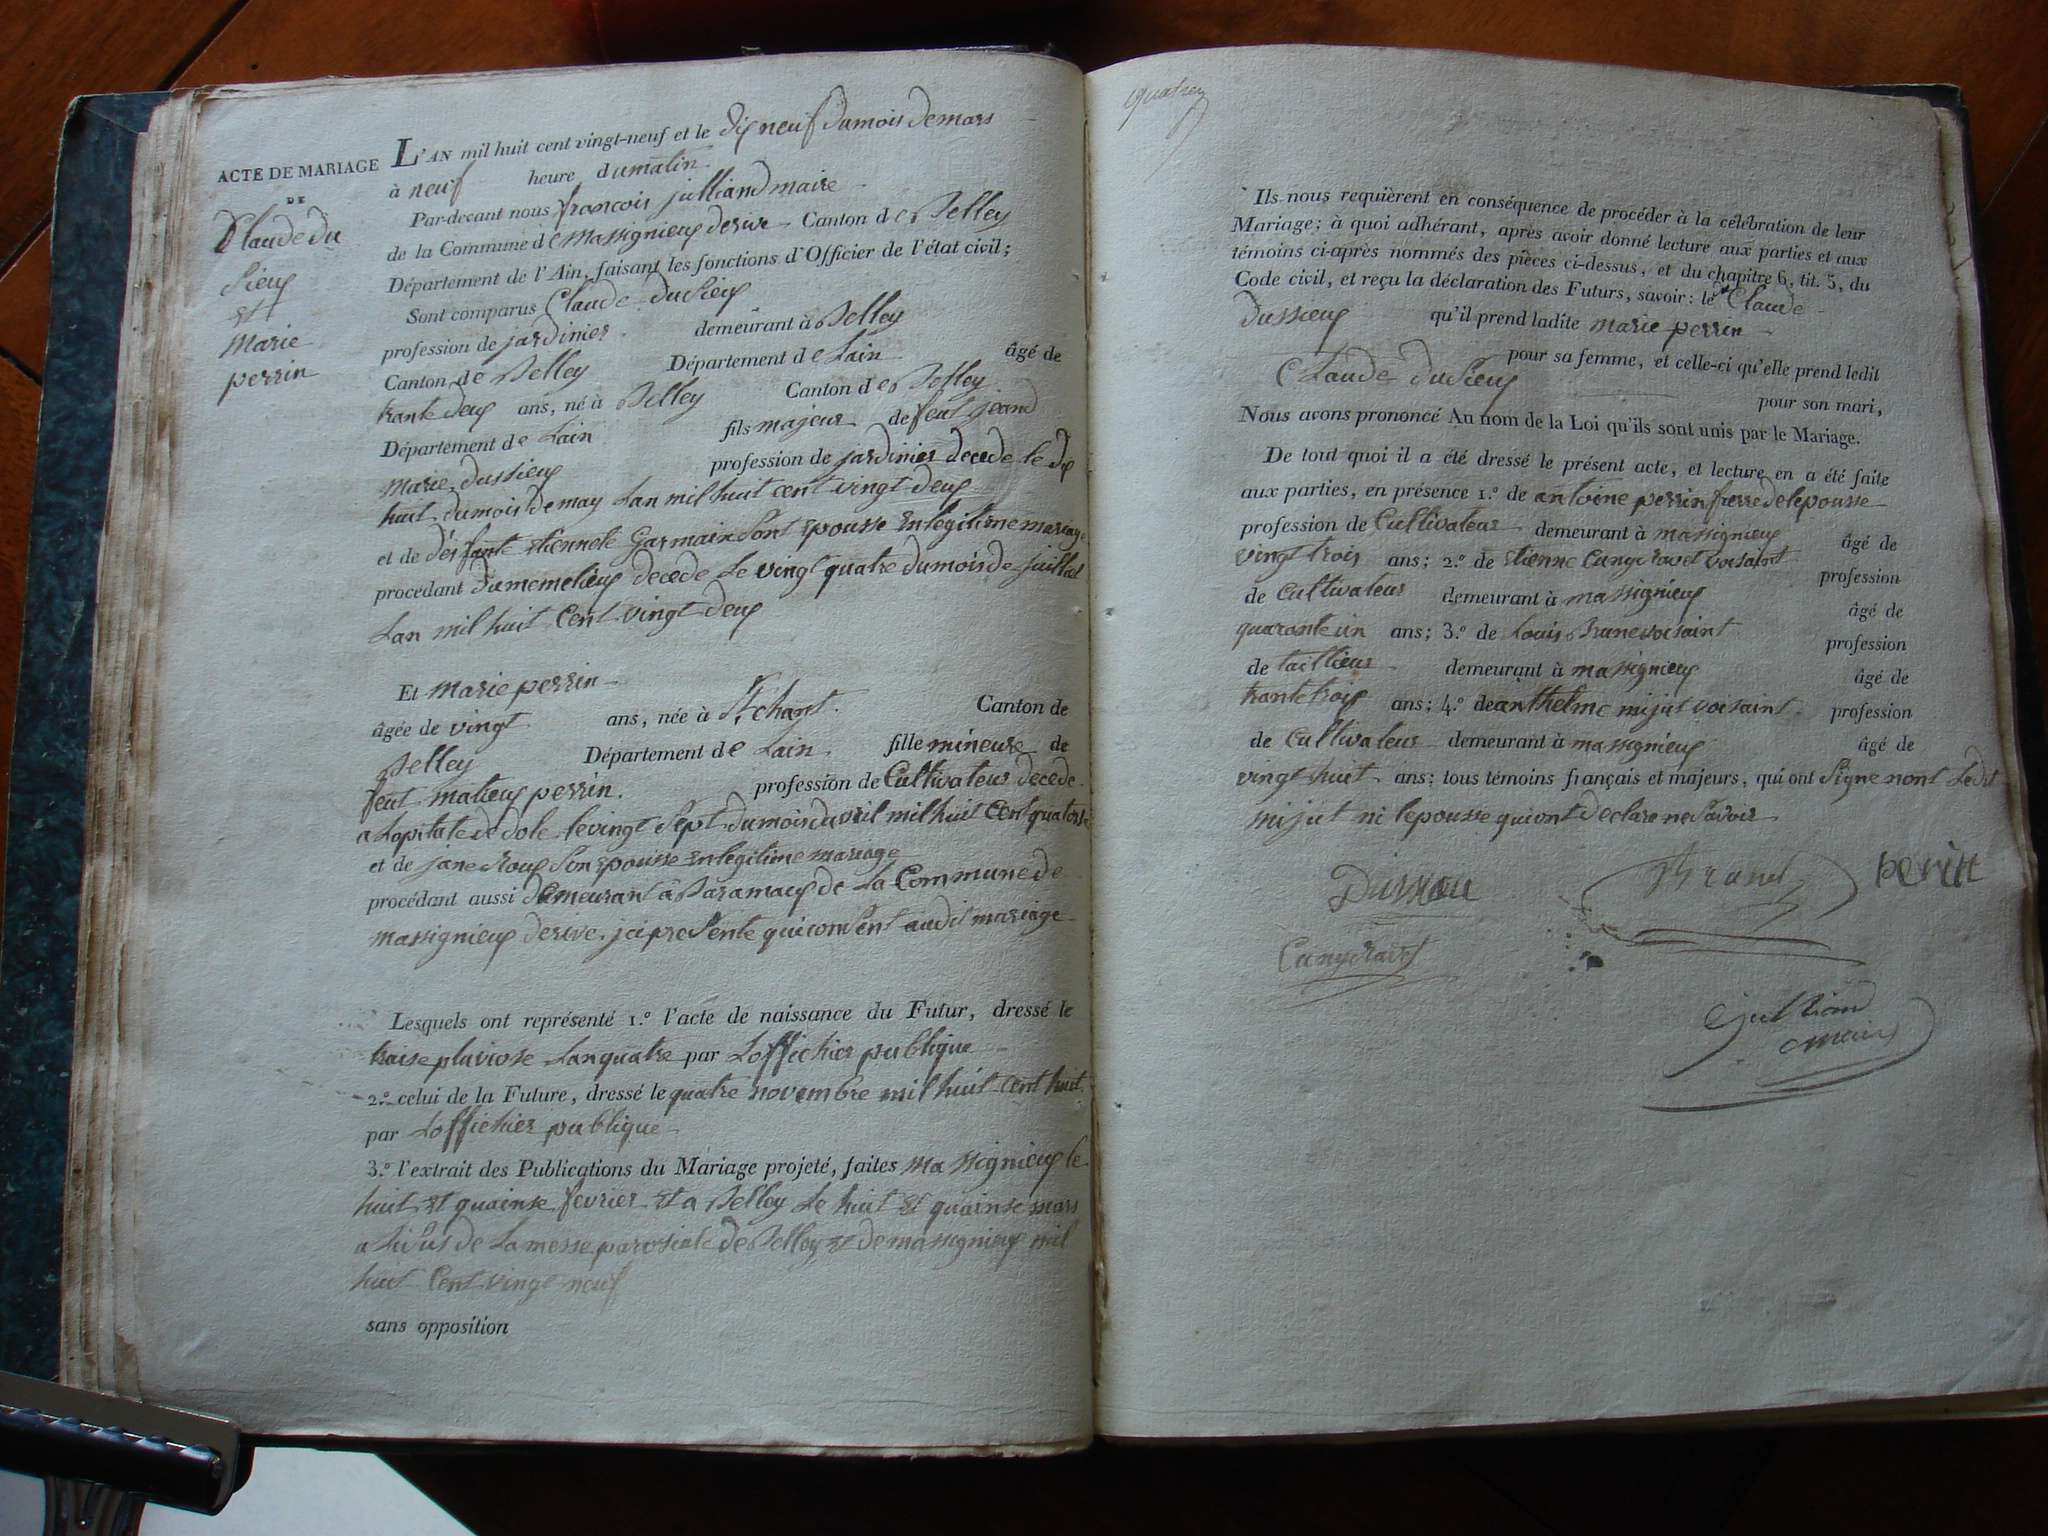 ACTE DE MARIAGE
DE
Claude du
sieux
et
Marie
perrin
L'AN mil huit cent vingt-neuf et le dix neuf du mois de mars
à neuf heure du matin
Par-devant nous francois julliand maire
de la Commune de massignieux de rive Canton de Belley
Département de l'Ain, faisant les fonctions d'Officier de l'état civil;
Sont comparus Claude dusieux
profession de jardinier demeurant à Belley
Canton de Belley Département de Lain âgé de
trante deux ans, né à Belley Canton de Belley
Département de Lain fils majeur de feut jeand
marie dussieux profession de jardinier decede le dix
huit du mois de may Lan mil huit cent vingt deux
et de desfante etiennete Garmain sont epousse en legitime mariage
procédant du meme lieux decede le vingt quatre du mois de juillet
Lan mil huit Cent vingt deux
Et Marie perrin
âgée de vingt ans, née à St chant Canton de
Belley Département de Lain fille mineure de
feut matieux perrin profession de Cultivateur decede
a Lopitale de dole le vingt sept du mois davril mil huit Cent quatorse
et de jane roux son epousse en legitime mariage
procédant aussi demeurant à Paramaux de La Commune de
massignieux de rive ici presente qui consent audit mariage
Lesquels ont représenté 1.º l'acte de naissance du Futur, dressé le
traise pluviose Lan quatre par Loffichier publique
2.º celui de la Future, dressé le quatre novembre mil huit cent huit
par Loffichier publique
3.º l'extrait des Publications du Mariage projeté, faites massignieux le
huit et quainse fevrier et a Belley le huit et quainse mars
de La messe parosiale de Belley et de massignieux mil
huit Cent vingt neuf
sans opposition
Ils nous requièrent en conséquence de procéder à la célébration de leur
Mariage; à quoi adhérant, après avoir donné lecture aux parties et aux
témoins ci-après nommés des pièces ci-dessus, et du chapitre 6, tit. 5, du
Code civil, et reçu la déclaration des Futurs, savoir: le dt Claude
dussieux qu'il prend ladite marie perrin
pour sa femme, et celle-ci qu'elle prend ledit
Claude dusieux pour son mari,
Nous avons prononcé Au nom de la Loi qu'ils sont unis par le Mariage.
De tout quoi il a été dressé le présent acte, et lecture en a été faite
aux parties, en présence 1.º de antoine perrin frerre de lepousse
profession de Cultivateur demeurant à massignieux âgé de
vingt trois ans; 2.º de etienne Cangravet voisaint profession
de cultivateur demeurant à massignieux âgé de
quarante un ans; 3.º de Louis Brunet voisaint profession
de taillieur demeurant à massignieux âgé de
trante trois ans; 4.º de anthelme mijut voisaint profession
de Cultivateur demeurant à massignieux âgé de
vingt huit ans; tous témoins français et majeurs, qui ont signe nont Ledit
mijut ni lepousse qui ont declare ne savoir
Brunet
perin
julliand
maire